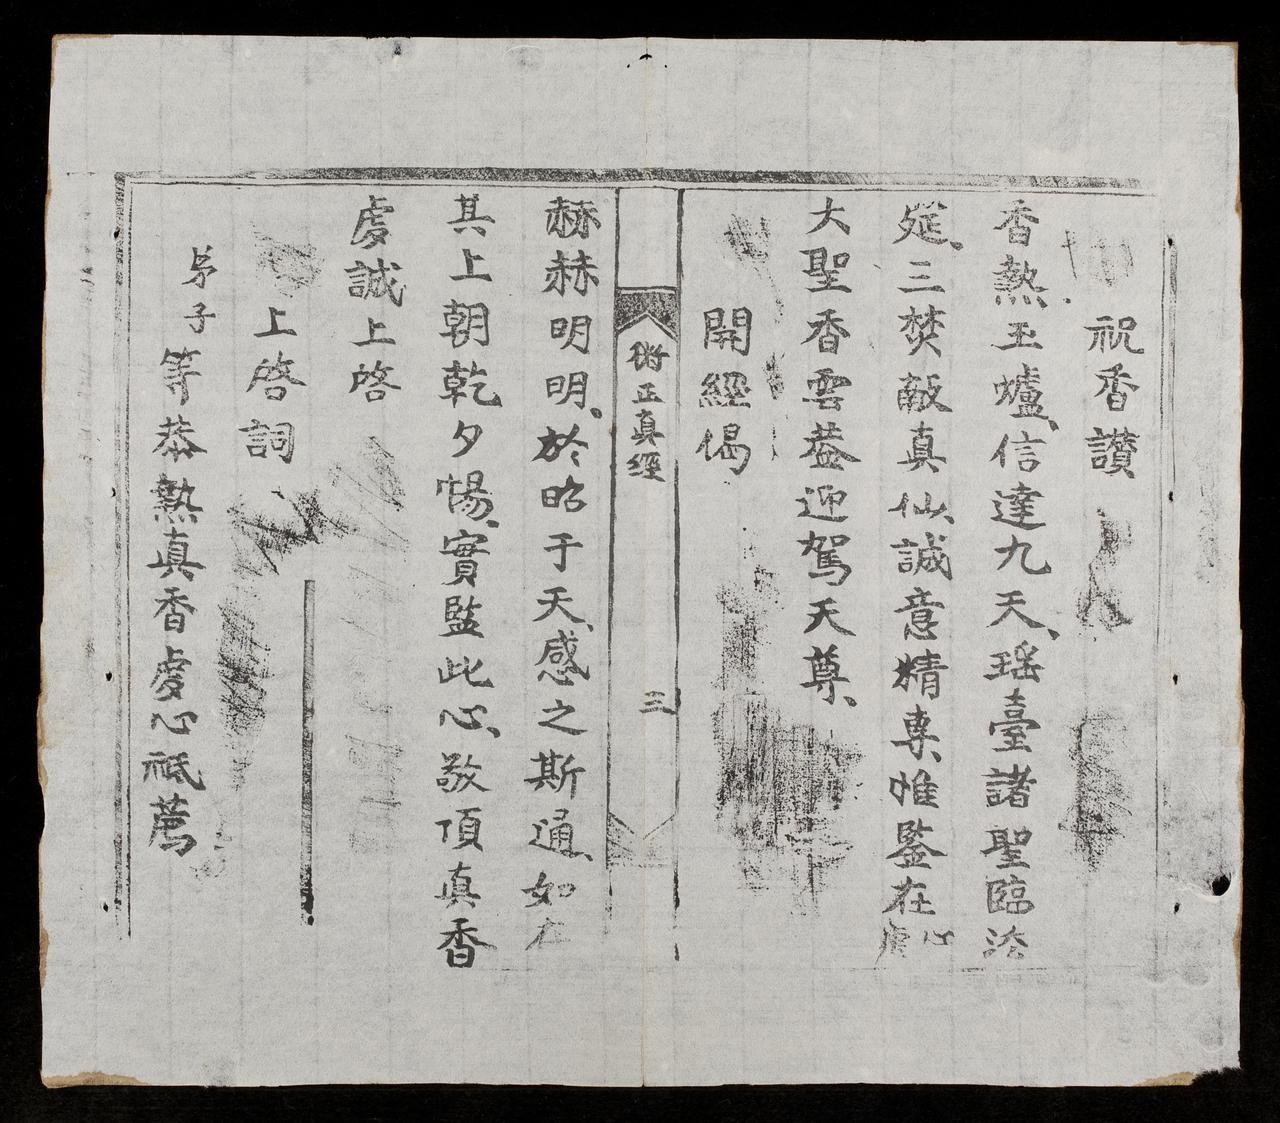 祝香讚
香熱玉爐、信達九天、瑶臺諸聖臨法
筵、三焚敵真仙、誠意精專、惟鑒在
大聖香雲葢迎駕天尊、
開經偈
正真經
三
赫赫明明、於昭于天、感之斯通、如在
其上朝乾夕惕、實監此心、敬頂真香
虔誠上啓
上啓詞
弟子等恭熱真香虔心祗薦